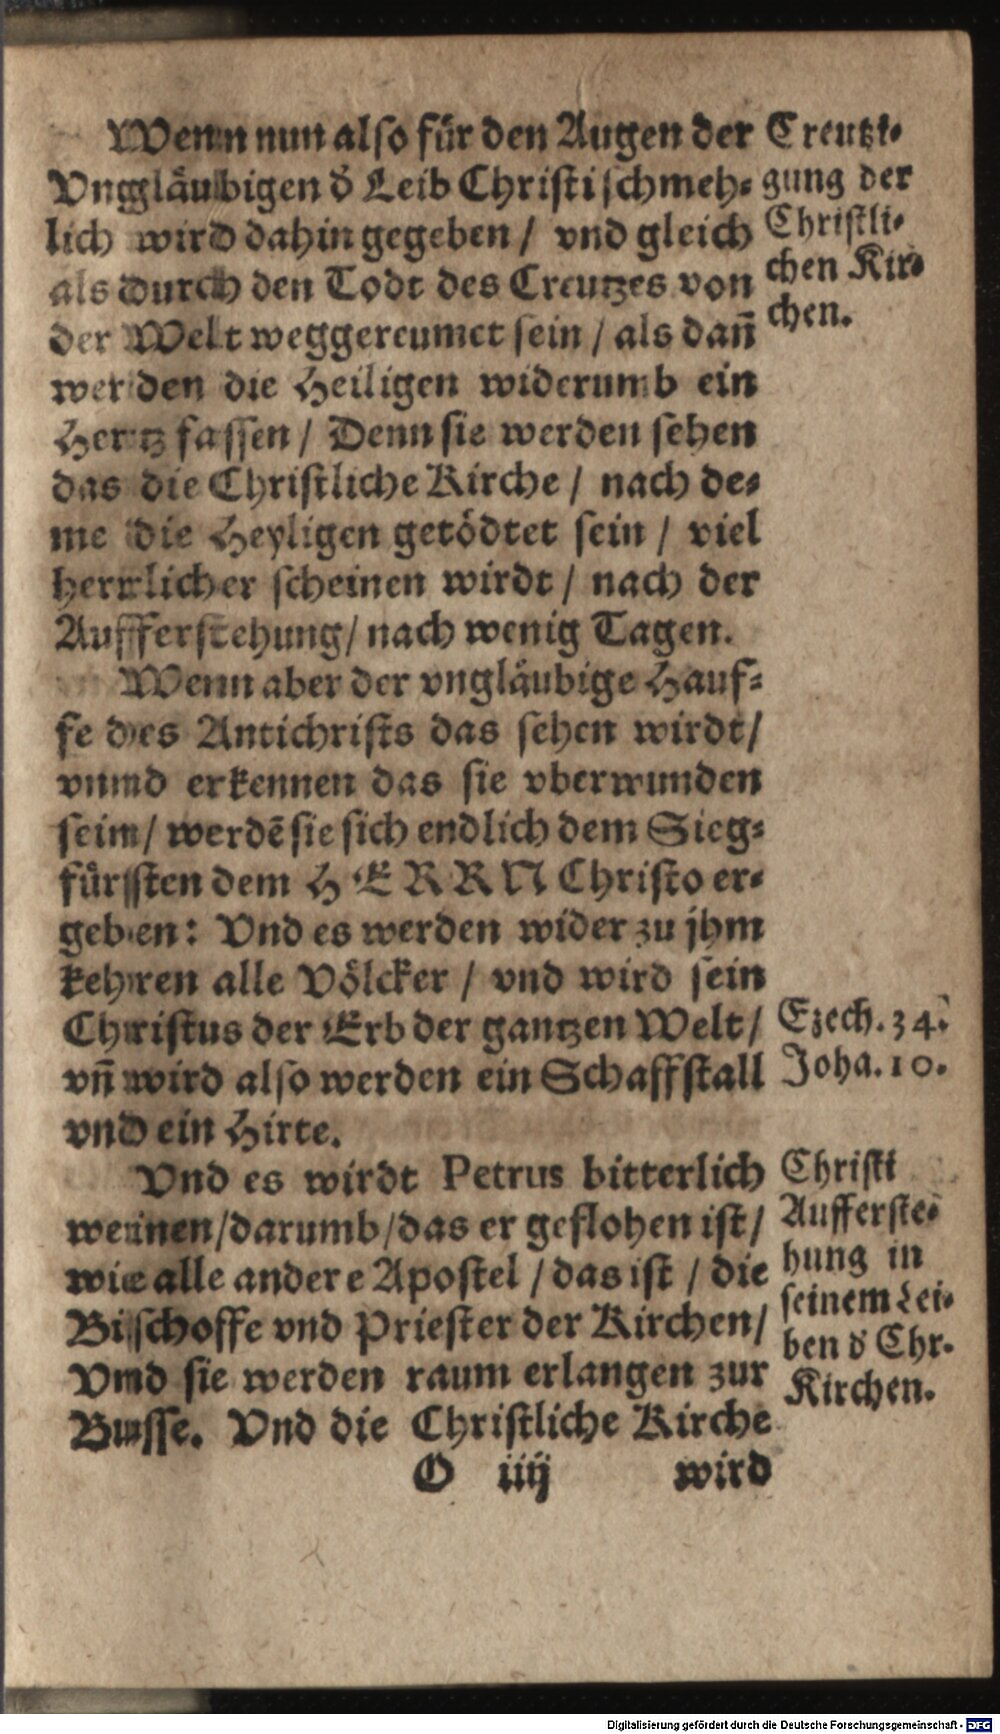 Wenn nun also für den Augen der
Vngläubigen d̕ Leib Christi schmeh⸗
lich wird dahin gegeben / vnd gleich
als durch den Todt des Creutzes von
der Welt weggereumet sein / als dañ
werden die Heiligen widerumb ein
Hertz fassen / Denn sie werden sehen
das die Christliche Kirche / nach de⸗
me die Heyligen getödtet sein / viel
herrlicher scheinen wirdt / nach der
Aufferstehung / nach wenig Tagen.
Wenn aber der vngläubige Hauf⸗
fe des Antichrists das sehen wirdt /
vnnd erkennen das sie vberwunden
sein / werdē sie sich endlich dem Sieg⸗
fürsten dem HERRN Christo er⸗
geben: Vnd es werden wider zu jhm
kehren alle Völcker / vnd wird sein
Christus der Erb der gantzen Welt /
vñ wird also werden ein Schaffstall
vnd ein Hirte.
Vnd es wirdt Petrus bitterlich
weinen / darumb / das er geflohen ist /
wie alle andere Apostel / das ist / die
Bischoffe vnd Priester der Kirchen /
Vnd sie werden raum erlangen zur
Busse. Vnd die Christliche Kirche
O iiij wird
Creutzi⸗
gung der
Christli⸗
chen Kir⸗
chen.
Ezech. 34.
Joha. 10.
Christi
Aufferste⸗
hung in
seinem Lei⸗
ben d̕ Chr.
Kirchen.
Digitalisierung gefördert durch die Deutsche Forschungsgemeinschaft - DFG